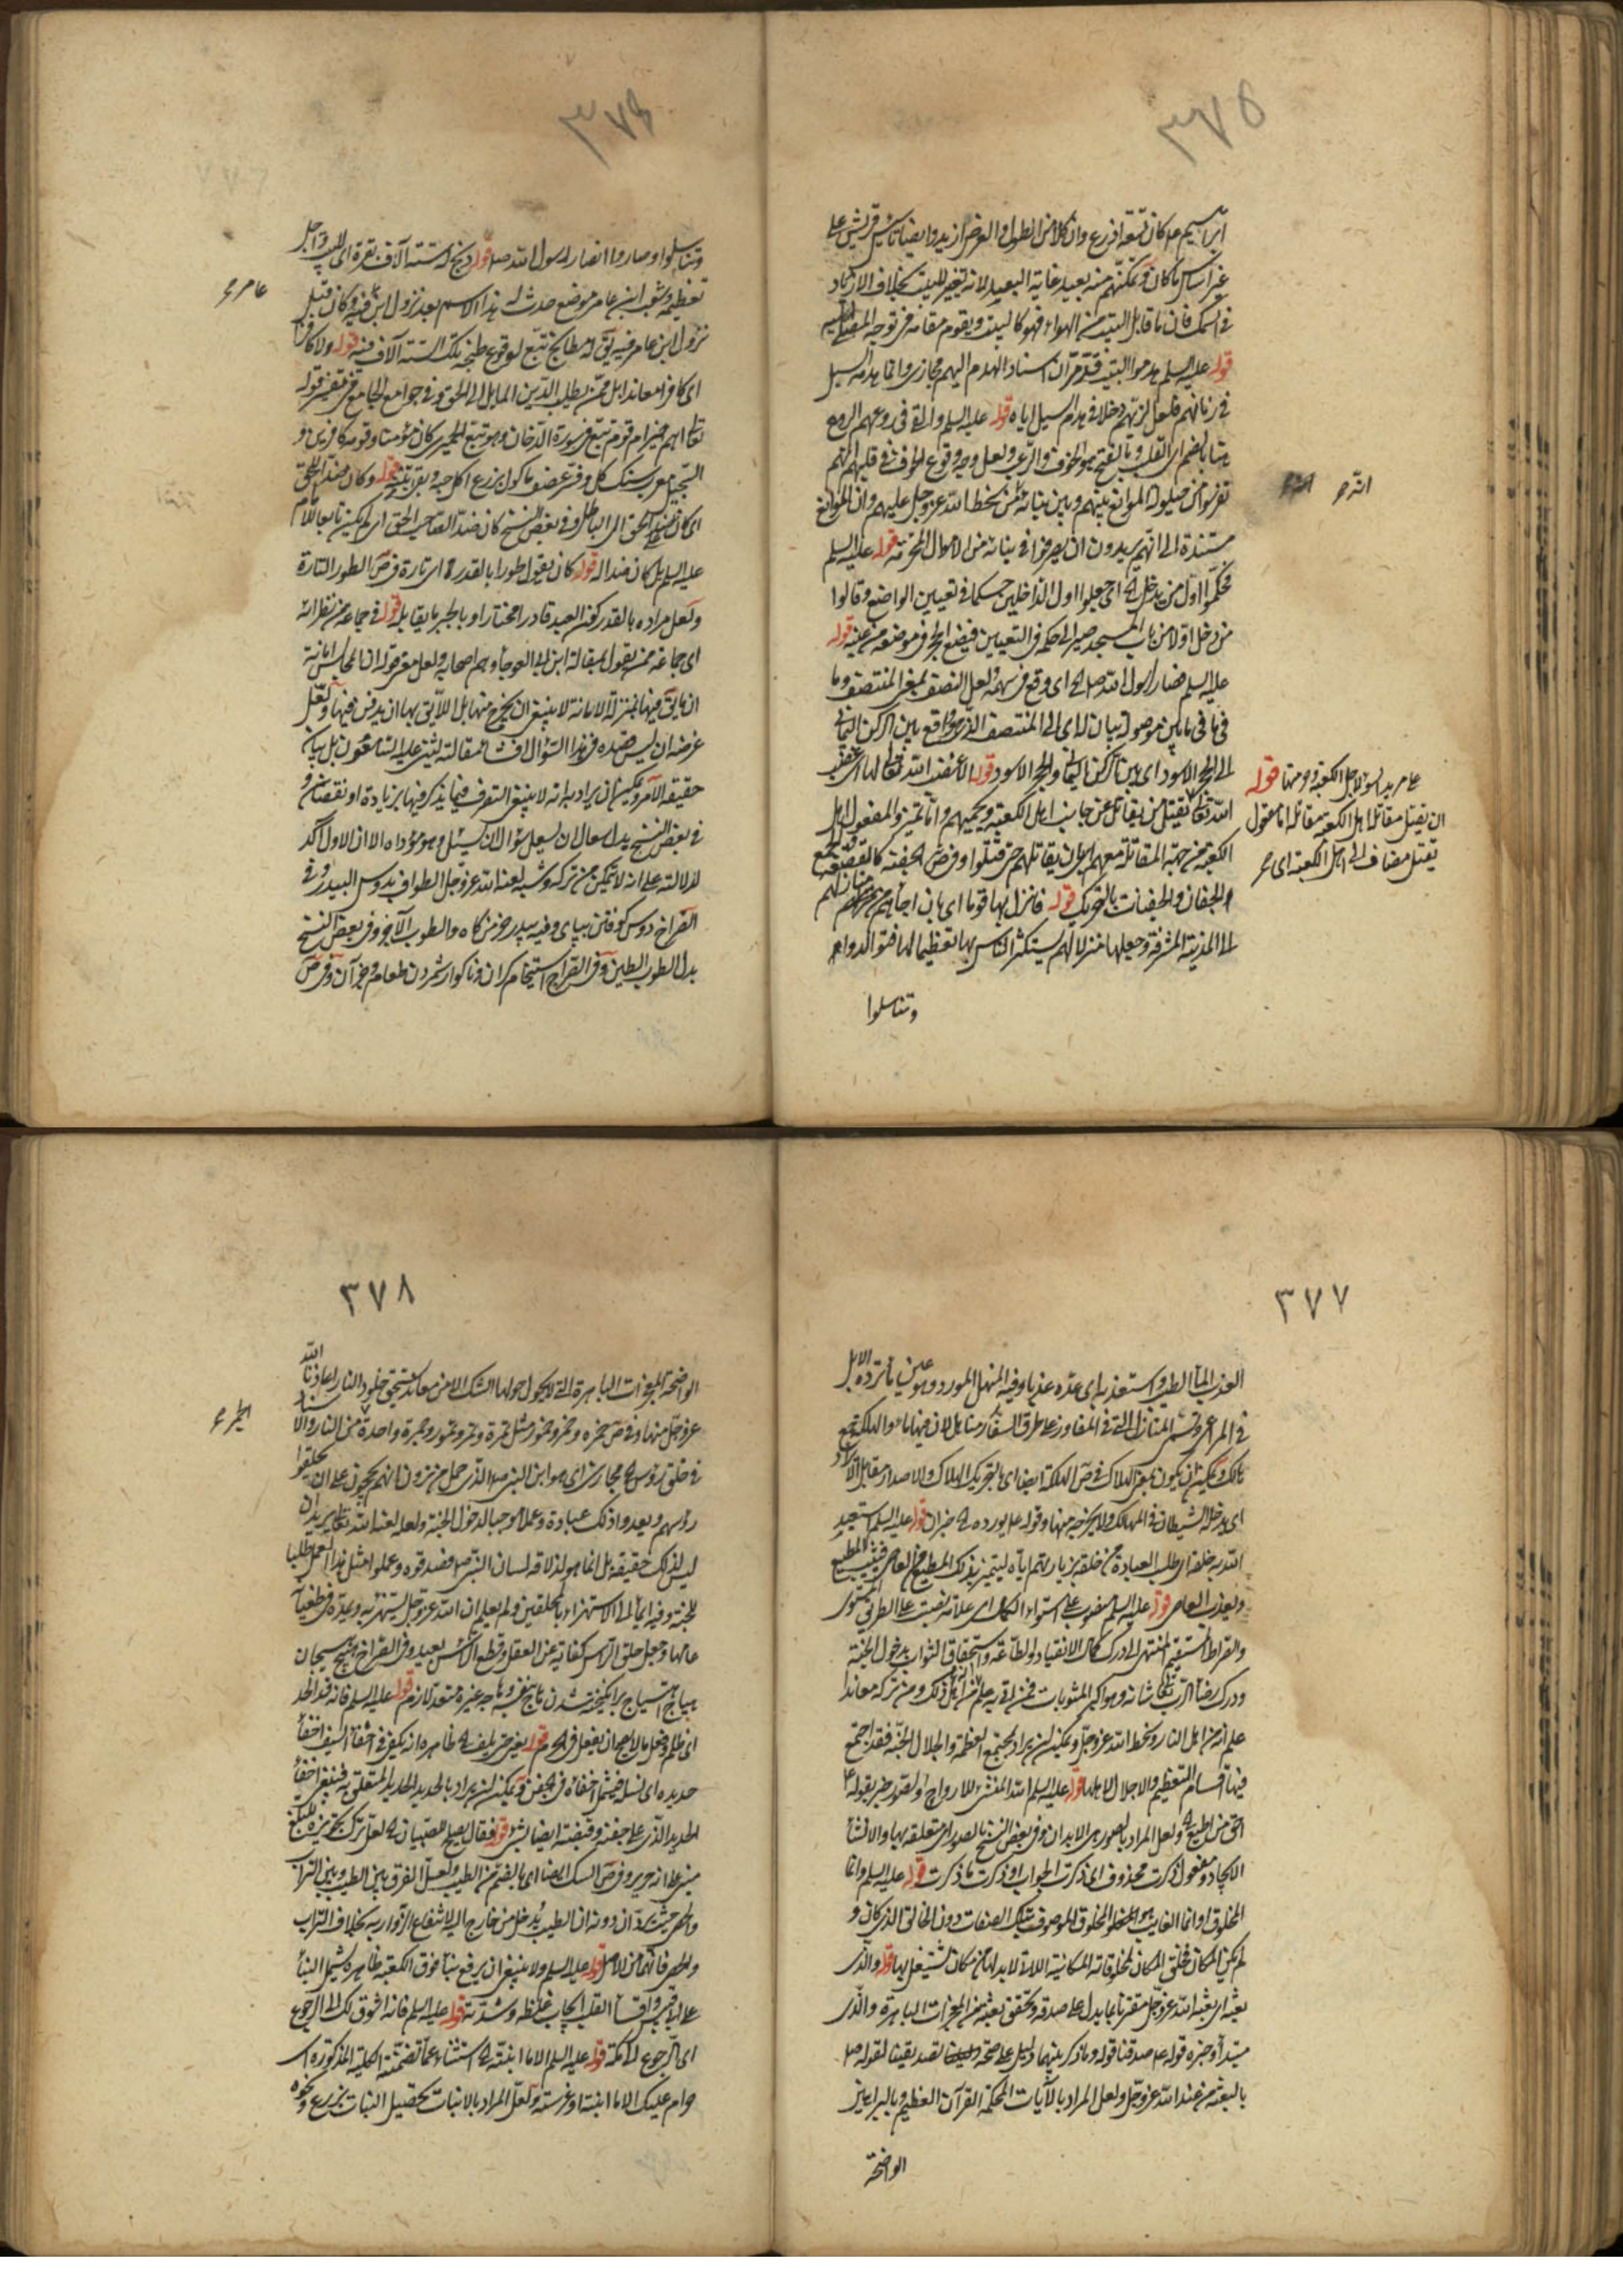 ٣٧٥
ابراهيم ع كان تسعة اذرع وان كلا من الطول والعرض ازيد وايضا تأسيس قريش على
غير اساس ما كان وتمكنهم منه بعيد غاية البعيد لانه تغيير للبيت بخلاف الازدياد
في السمك فان ما قابل البيت من الهواء فهو كالبيت ويقوم مقامه في توجه المصلي اليه
قوله عليه السلم هدموا البيت قد مر ان اسناد الهدم اليهم مجازي وانما هدمه السيل
في زمانهم فلعل لهم دخلا في هدم السيل اياه قوله عليه السلم والقى في روعهم الروع
ههنا بالضم اي القلب وبالفتح هو الخوف والرعب ولعل وجه وقوع الخوف في قلبهم انهم
تفرسوا من حيلولة الموانع بينهم وبين بنائه من سخط الله عز وجل عليهم وان الموانع
مستندة الى انهم يريدون ان يصرفوا في بنائه من الاموال المحرمة قوله عليه السلم
فحكموا اول من يدخل اه اي جعلوا اول الداخلين حكما في تعيين الواضع وقالوا
من دخل اولا من باب المسجد صير الى حكمه في التعيين فيضع الحجر في موضعه من عينه قوله
عليه السلم فصار لرسول الله صلى اه اي وقع في سهمه ولعل النصف بمعنى المنتصف وما
في ما في ما بين موصولة بيان له اي الى المنتصف الذي هو واقع بين الركن اليماني
الى الحجر الاسود اي بين الركن اليماني والحجر الاسود قوله الا غضب الله تعالى لها اي غضب
الله تعالى بقتل من يقاتل عن جانب اهل الكعبة ويحميهم وانا تميز والمفعول اهل
الكعبة من جهة المقاتلة معهم اي بان يقاتلهم حتى قتلوا وفي ص الجفنة كالقصعة والجمع
والجفان والجفنات بالتحريك قوله فانزل بها قوما اي بان اجاءهم من منازلهم
الى المدينة المشرفة وجعلها منزلا لهم يستكثر الناس بها تعظيما لها فتوالدوا
وتناسلوا
الله ح
عامر يد بسوء لاجل الكعبة ومنها قوله
ان يقتل مقاتلة اهل الكعبة مقاتلة اما مفعول
يقتل مضاف الى اهل الكعبة اي ح
٣٧٦
وتناسلوا وصاروا انصار لرسول الله صلى قوله وذبح له ستة آلاف بقرة اي للبيت ولاجل
تعظيمه وشعب ابن عامر موضع حدث له هذا الاسم بعد نزول ابن عامر فيه وكان قبل
نزول ابن عامر فيه يق له مطابخ تبع لوقوع طبخ تلك الستة آلاف فيه قوله ولا كافرا
اي كافرا معاندا بل ممن يطلب الدين المايل الى الحق وفي جوامع الجامع في تفسير قوله
تعالى اهم خير ام قوم تبع في سورة الدخان وهو تبع الحميري كان مؤمنا وقومه كافرين و
السجيل معرب سنك كل وفسر عصف مأكول بزرع اكل حبه وبقي تبنه قوله وكان ضد الحق
اي كان ضد الحق الى الباطل وفي بعض النسخ كان ضدا لصاحب الحق اي لم يكن تابعا للامام
عليه السلم بل كان ضدا له قوله كان يقول طورا بالقدر اه اي تارة في ص الطور التارة
ولعل مراده بالقدر كون العبد قادرا مختارا وبالجبر ما يقابله قوله في جماعة من نظرائه
اي جماعة ممن يقول بمقالة ابن ابي العوجاء وهم اصحابه ولعل معنى قوله ان المجالس امانة
ان ما يق فيها بمنزلة الامانة لا ينبغي ان يخرج منها بل اللايق بها ان يدفن فيها ولعل
غرضه ان ليس قصده في هذا السؤال افشاء مقالته ليشنع عليه السامعون بل بيان
حقيقة الامر ويمكن ان يراد به انه لا ينبغي التصرف فيما يذكر فيها بزيادة او نقصان و
في بعض النسخ بدل سعال لان يسعل سؤال لان يسئل وهو مؤداه الا ان الاول اكد
للدلالة على انه لا يتمكن من تركه وشبه لعنه الله عز وجل الطواف بدوس البيدر وفي
القراح دوس كوفتن بپاي وفيه بيدر خرمن كاه والطوب الآجر وفي بعض النسخ
بدل الطوب الطين وفي القراح استيخام كران وناكوار شمردن طعام وجز آن وفي ص
عامر ح
٣٧٧
العذب الماء الطيب واستعذبه اي عده عذبا وفيه المنهل المورد وهو عين ماء ترده الابل
في المراعي وتسمى المنازل التي في المفاوز على طرق السفار مناهل لان فيها ماء والهلكة جمع
هالك ويمكن ان يكون بمعنى الهلاك في ص الهلكة ايضا اي بالتحريك الهلاك والاصدار مقابل الايراد
اي يدخله الشيطان في المهالك ولا يخرجه منها وقوله ع يورده اه خبر ان قوله عليه السلم استعبد
الله به خلقه اي طلب العبادة من خلقه بزيارتهم اياه ليتميز بذلك المطيع من العاصي فيثيب المطيع
ويعذب العاصي قوله عليه السلم منصوب على استواء الكمال اي علامة نصبت على الطريق المستوي
والصراط المستقيم المنتهي الى درك كمال الانقياد لاطاعة واستحقاق الثواب بدخول الجنة
ودرك رضاء الرب تعالى شانه وهو اكبر المثوبات فمن اتى به علم انه من اهل ذلك ومن تركه معاندا
علم انه من اهل النار وسخط الله عز وجل ويمكن ان يراد بمجتمع العظمة والجلال الجنة فقد اجتمع
فيها اقسام التعظيم والاجلال لاهلها قوله عليه السلم الله المنشئ للارواح والصور خبر لقوله ع
احق من اطيع اه ولعل المراد بالصور هي الابدان وفي بعض النسخ بالصور اي متعلقة بها والانشاء
الايجاد ومفعول ذكرت محذوف اي ذكرت الجواب او ذكرت ما ذكرت قوله عليه السلم وانما
المخلوق او انما الغايب هو المخلوق الموصوف بتلك الصفات دون الخالق الذي كان و
لم يكن المكان فخلق المكان لمخلوقاته المكانية اللاتي لابد لها من مكان تشتغل بها قوله والذي
بعثه اي بعثه الله عز وجل مقترنا بما يدل على صدقه وتحقق بعثه من المعجزات الباهرة والذي
مبتدأ وخبره قوله ع صدقنا قوله وما ذكر بينهما دليل على صحة تصديقنا لقوله ص
بالبعثة من عند الله عز وجل ولعل المراد بالآيات المحكمة القرآن العظيم وبالبراهين
الواضحة
٣٧٨
الواضحة المعجزات الباهرة التي لا يحول حولها الشك الا من معاند يستحق خلود النار اعاذنا الله
عز وجل منها وفي ص خمره وخمر وخمور مثل تمرة وتمر وتمور وجمرة واحدة من النار والاسناد
في حلق رؤس اه مجازي اي هو ابن النبي ص الذي حمل من ترون انهم يحجون على ان يحلقوا
رؤسهم ويعدوا ذلك عبادة وعملا موجبا لدخول الجنة ولعله لعنه الله تعالى يريد ان
ليس لذلك حقيقة بل انما هو لذلاقة لسان النبي ص فصدقوه وعملوا مثل هذا العمل طلبا
للجنة وفيه ايماء الى الاستهزاء بالمحلقين ولم يعلم ان الله عز وجل يستهزئ به ويمده في طغيانه
عامها وجعل حلق الراس كناية عن العقل وقطع الراس بعيد وفي القراح هيج هيجان
هياج اهتياج برانكيخته شدن هاج بنفسه وهاجه غيره متعد لازم قوله عليه السلم فانه قد الحد
اي ظلم وفعل ما لا يصح ان يفعل في الحرم قوله يعني حتى يلف اه ظاهره انه يكفي في اخفاء السيف اخفاء
حديده اي نسله فيشمل اخفاءه في الجفن ويمكن ان يراد بالحديد الحديد المتعلق به فينبغي اخفاء
الحديد الذي على جفنه وقبضته ايضا بشيء قوله فقال يصلح للصبيان اه لعل ترك تجويزه للبالغ
مبني على انه حرير وفي ص السك ايضا اي بالضم من الطيب ولعل الفرق بين الطيب وبين التراب
والحصى حيث يرد ان دونه ان الطيب يدخل من خارج اليه لانتفاع الزوار به بخلاف التراب
والحصى فانهما من الاصل قوله عليه السلم ولا ينبغي ان يرفع بناء فوق الكعبة ظاهره يشمل البناء
على ابي قبيس واقساء القلب ايجاب غلظه وشدته قوله عليه السلم فانه اشوق لك الى الرجوع
اي الرجوع لمكة قوله عليه السلم الا ما انبته اه استثناء عما تضمنته الكلية المذكورة اي
حرام عليك الا ما انبته او غرسته ولعل المراد بالانبات تحصيل النبات بزرع ونحوه
الحرم ح